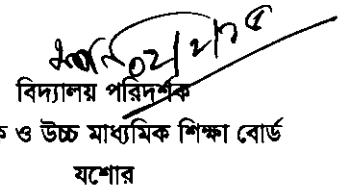 ০২/২/১৫
বিদ্যালয় পরিদর্শক
ক ও উচ্চ মাধ্যমিক শিক্ষা বোর্ড
যশোর